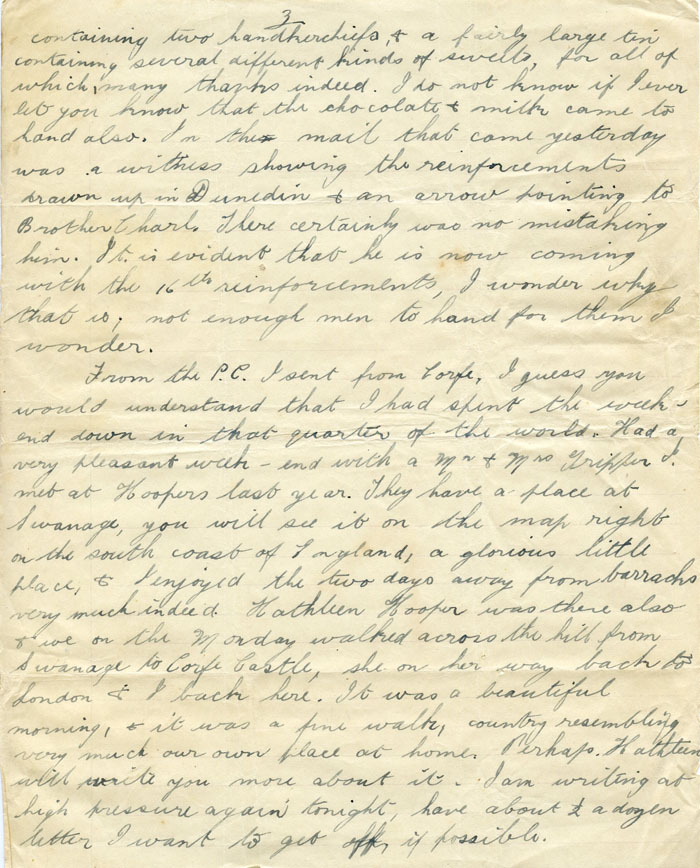 3
containing two handkerchiefs, & a fairly large tin
containing several different kinds of swells, for all of
which, many thanks indeed. I do not know if I ever
let you know that the chocolate & milk came to
hand also. In the mail that came yesterday
was a witness showing the reinforcements
drawn up in Dunedin & an arrow pointing to
Brother Charl. There certainly was no mistaking
him. It is evident that he is now coming
with the 16th reinforcements, I wonder why
that is; not enough men to hand for them I
wonder.
From the P.C. I sent from Corfe, I guess you
would understand that I had spent the week-
end down in that quarter of the world. Had a
very pleasant week-end with a Mr & Mrs Tripper I
met at Hoopers last year. They have a place at
Swanage, you will see it on the map right
on the south coast of England, a glorious little
place, & I enjoyed the two days away from barracks
very much indeed. Kathleen Hooper was there also
& we on the Monday walked across the hill from
Swanage to Corfe Castle, she on her way back to
London & I back here. It was a beautiful
morning, & it was a fine walk, country resembling
very much our own place at home. Perhaps Kathleen
will write you more about it. I am writing at
high pressure again tonight, have about ½ a dozen
letter I want to get off, if possible.